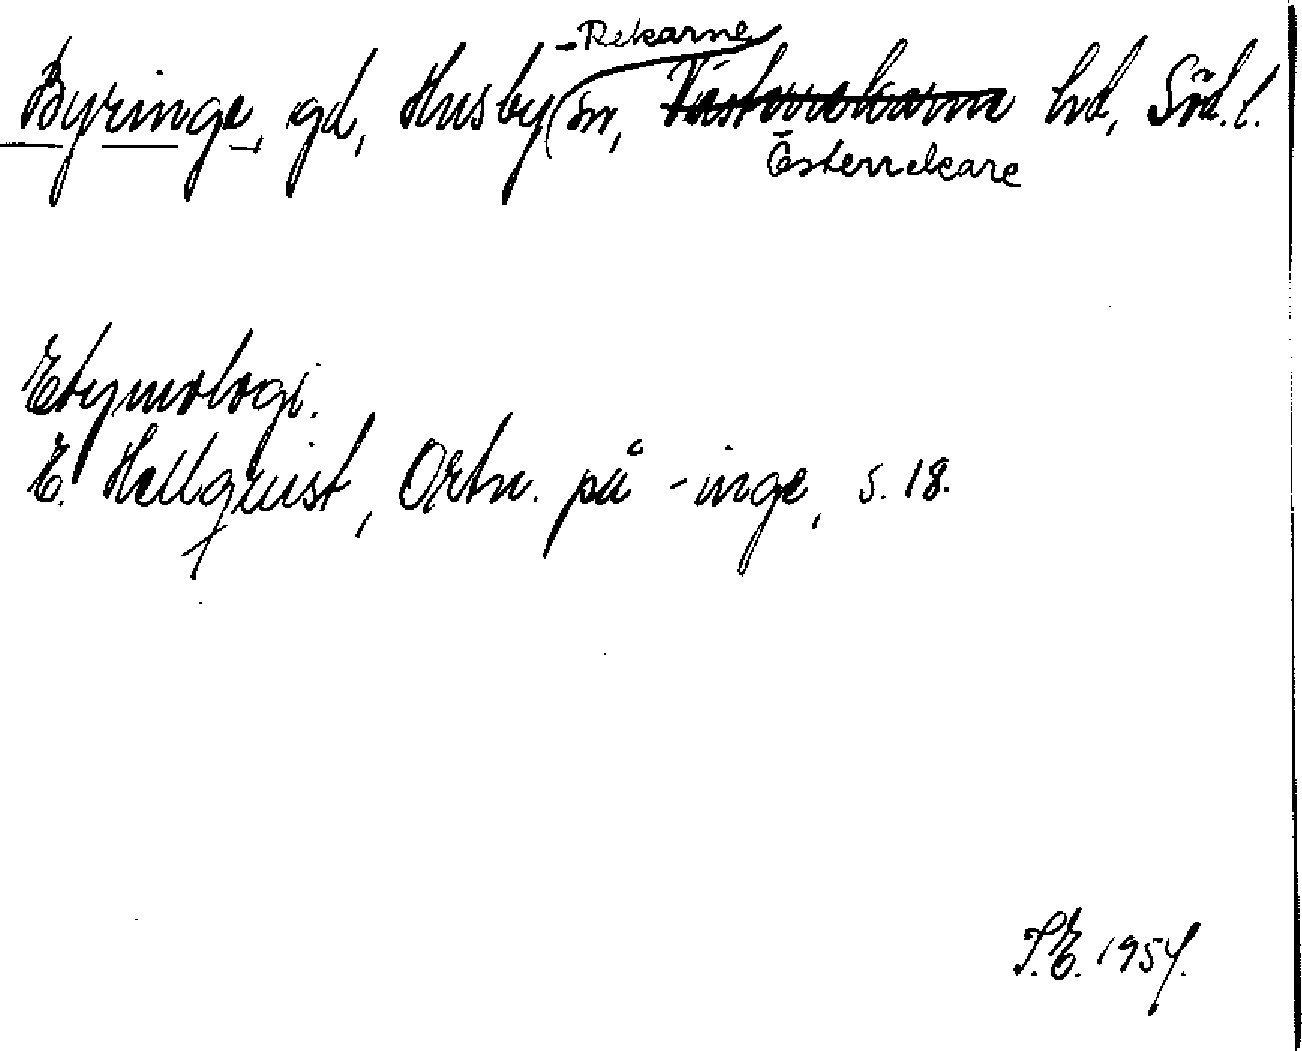 -Rekarne
Byringe, gd, Husby sn, Västerrekarne hd, Söd.l.
Österrekarne
Etymologi.
E. Hellquist, Ortn. på -inge, s. 18.
I.E. 1954.